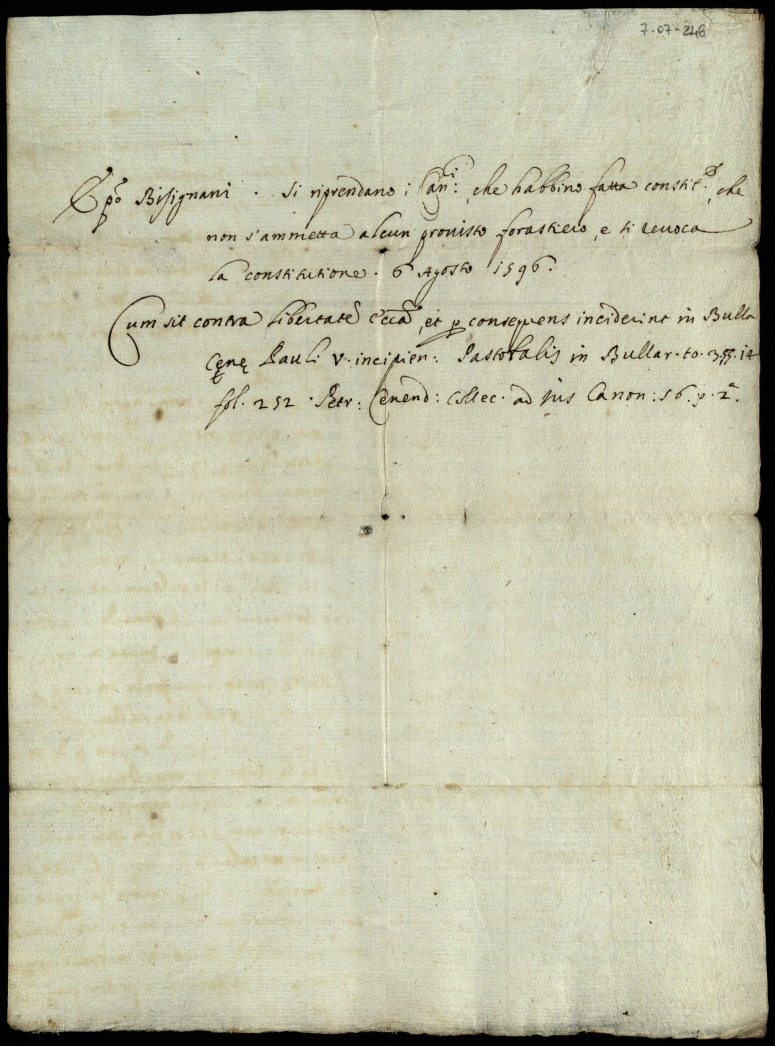 7-07-246
Ep̃o Bisignani. Si riprendano i Can:ci, che habbino fatta constit.e, che
non s'ammetta alcun provisto forastiero, e si revoca
la constitutione. 6 Agosto 1596.
Cum sit contra libertatẽ Ecc̃a, et p consequens inciderint in Bulla
Cęnę Pauli V. incipien: Pastoralis in Bullar. to. 3. 14
fol. 252. Petr: Cenend: Collec. ad jus Canon: 56. p. 2.a